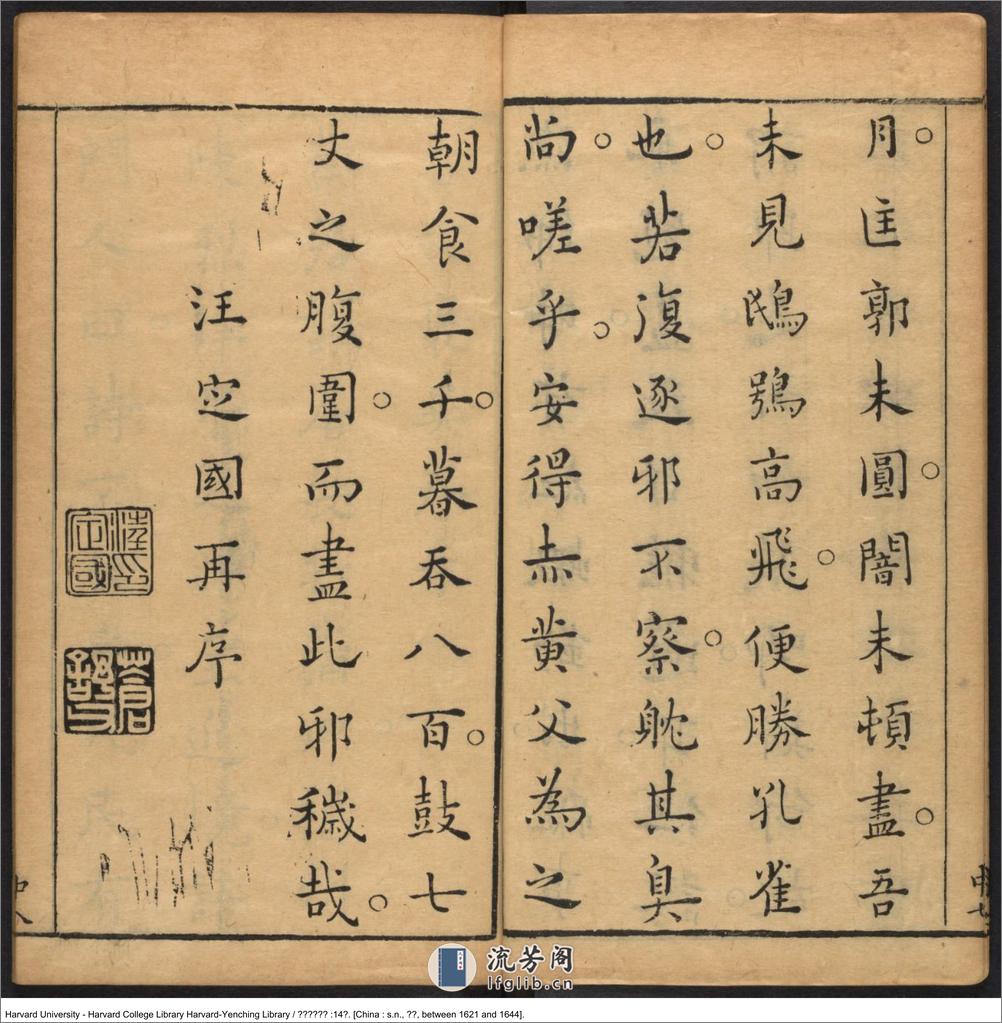 月匡郭未圓闇未頓盡吾
未見鴟鴞高飛便勝孔雀
也若復逐邪不察躭其臭
尚嗟乎安得赤黃父為之
朝食三千暮吞八百鼓七
丈之腹圍而盡此邪穢哉
汪定國再序
汪定國印
流芳阁
lfglib.cn
Harvard University - Harvard College Library Harvard-Yenching Library / ?????? :14?. [China : s.n., ??, between 1621 and 1644].